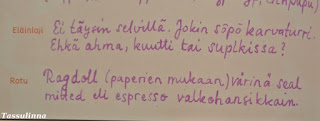 Eläinlaji Ei täysin selvillä. Jokin söpö karvaturri.
Ehkä ahma, kuutti tai supikissa?
Rotu Ragdoll (paperien mukaan) värinä seal
mitted eli espresso valkohansikkain.
Tassulinna